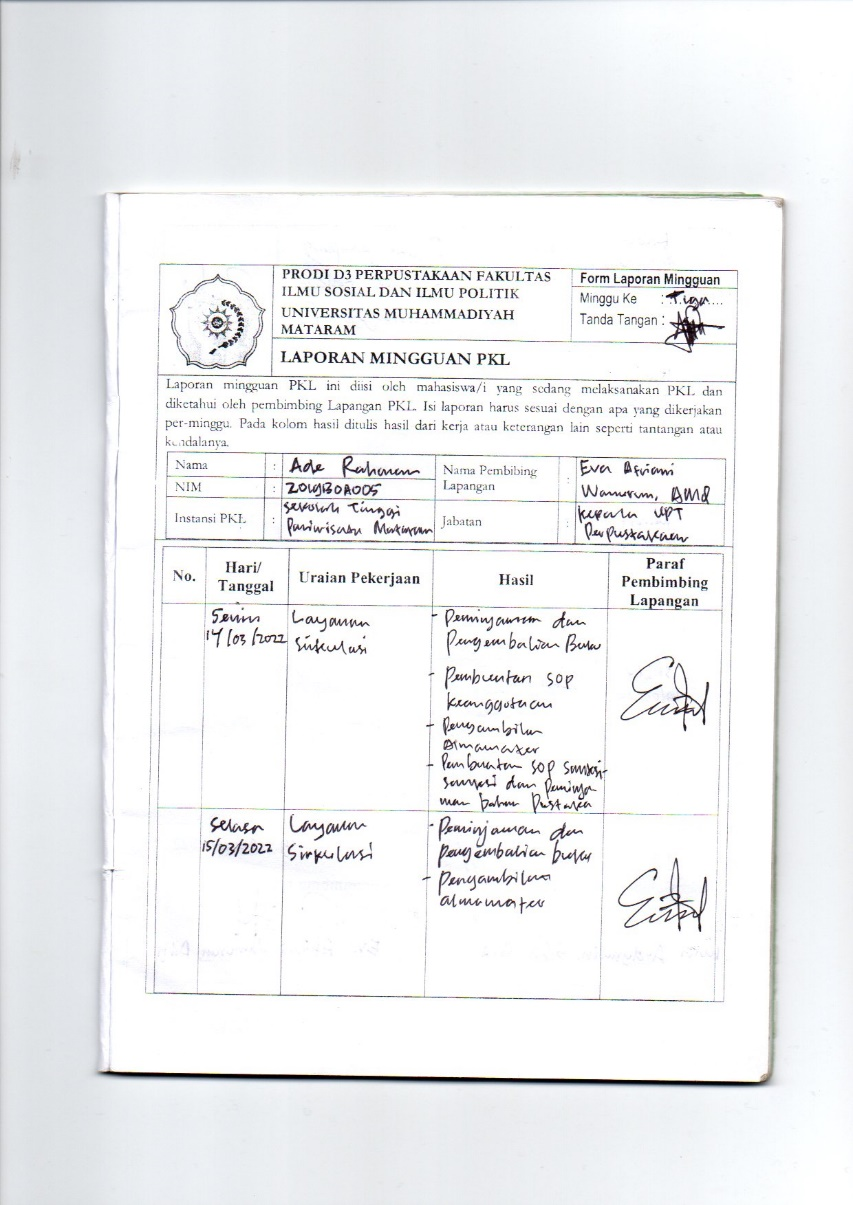 PRODI D3 PERPUSTAKAAN FAKULTAS
ILMU SOSIAL DAN ILMU POLITIK
UNIVERSITAS MUHAMMADIYAH
MATARAM
LAPORAN MINGGUAN PKL
Form Laporan Mingguan
Minggu Ke : Tiga....
Tanda Tangan :
Laporan mingguan PKL ini diisi oleh mahasiswa/i yang sedang melaksanakan PKL dan
diketahui oleh pembimbing Lapangan PKL. Isi laporan harus sesuai dengan apa yang dikerjakan
per-minggu. Pada kolom hasil ditulis hasil dari kerja atau keterangan lain seperti tantangan atau
kendalanya.
Nama : Ade Rahman
NIM : 2019B0A005
Instansi PKL : Sekolah Tinggi
Pariwisata Mataram
Nama Pembibing
Lapangan : Eva Asriani
AMd
Jabatan : Kepala UPT
Perpustakaan
No.
Hari/
Tanggal
Uraian Pekerjaan
Hasil
Paraf
Pembimbing
Lapangan
Senin
14/03/2022
Layanan
Sirkulasi
- Peminjaman dan
Pengembalian Buku
- Pembuatan SOP
keanggotaan
- Pengambilan
Almamater
- Pembuatan SOP Sanksi-
sanksi dan Peminja
man bahan Pustaka
Selasa
15/03/2022
Layanan
Sirkulasi
- Peminjaman dan
pengembalian buku
- Pengambilan
almamater